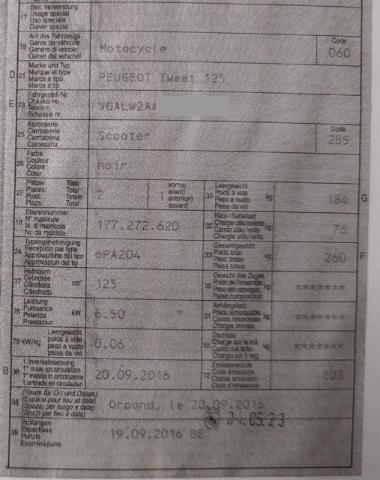 Usage spécial
Uso speciale
Diever spezial
19 Art des Fahrzeugs
Genre de véhicule
Genere di veicolo
Gener dal vehichel
Motocycle
Code
060
D 21 Marke und Typ
Marque et type
Marca e tipo
Marca e tip
PEUGEOT Tweet 125
E 23 Fahrgestell-Nr.
Châssis no
Telaio n.
Schassis nr.
VGALW2AA
25 Karosserie
Carrosserie
Carrozzeria
Carossaria
Scooter
Code
285
26 Farbe
Couleur
Colore
Colur
noir
27 Plätze: Total
Places: Total
Posti: Totale
Plazs: Total
2
vorne
avant
anteriori
davant
1
30 Leergewicht
Poids à vide
Peso a vuoto
Paisa da vid
kg
184
G
18 Stammnummer
N° matricule
N. di matricola
Nr. da matricla
177.272.620
32 Nutz-/Sattellast
kg
75
24 Typengenehmigung
Réception par type
Approvazione del tipo
Approvaziun dal tip
6PA204
33 Gesamtgewicht
Poids total
Peso totale
Paisa totala
kg
260
F
37 Hubraum
Cylindrée
Cilindrata
Cilindrada
cm³
125
35 Gewicht des Zuges
kg
*******
76 Leistung
Puissance
Potenza
Prestaziun
kW
6.50
31 Anhängelast
kg
*******
78 kW/kg Leergewicht
poids à vide
peso a vuoto
paisa da vid
0.06
55 Dachlast
Charge sur le toit
kg
*******
B 36 1. Inverkehrsetzung
1re mise en circulation
1a messa in circolazione
1. entrada en circulaziun
20.09.2016
72 Emissionscode
Code émissions
Codice emissioni
Code d'emissiuns
c03
38 (Raum für Ort und Datum)
(Espace pour lieu et date)
(Spazio per luogo e data)
(Spazi per lieu e data)
Orpond, le 20.09.2016
04.05.23
39 Prüfungen
Expertises
Perizie
Examinaziuns
19.09.2016 BE